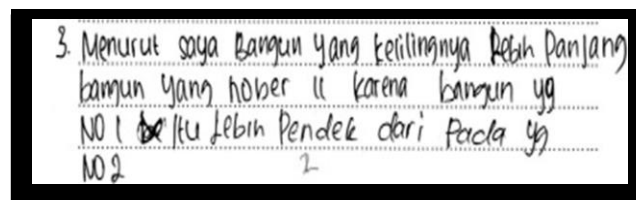 3. Menurut saya Bangun yang kelilingnya Lebih Panjang
bangun yang nober 11 karena bangun yg
NO 1 itu Lebih Pendek dari Pada yg
NO 2 2